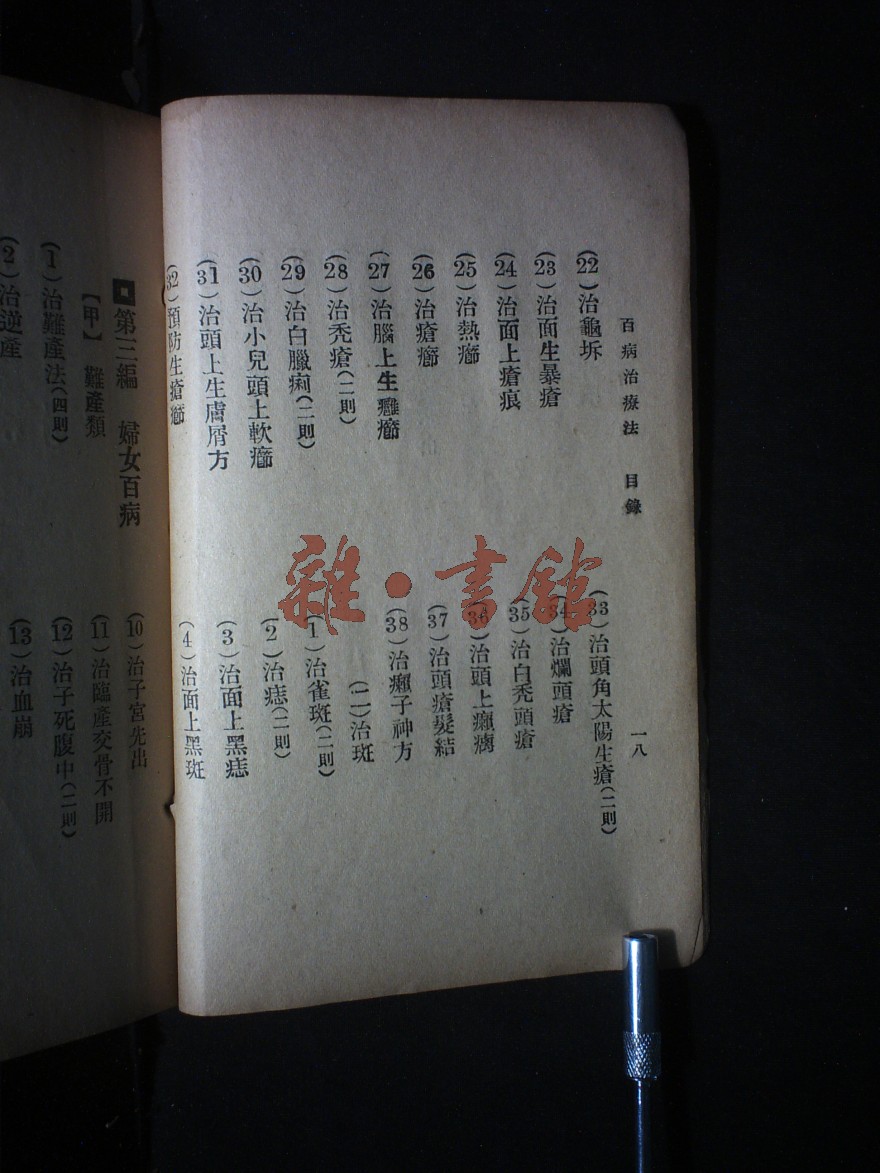 百病治療法　目錄　一八
(22)治龜坼
(23)治面生暴瘡
(24)治面上瘡痕
(25)治熱癤
(26)治瘡癤
(27)治腦上生癰癤
(28)治禿瘡(二則)
(29)治白臘痢(二則)
(30)治小兒頭上軟癤
(31)治頭上生膚屑方
(32)預防生瘡癤
(33)治頭角太陽生瘡(二則)
(34)治爛頭瘡
(35)治白禿頭瘡
(36)治頭上癩瘸
(37)治頭瘡髮結
(38)治癩子神方
(二)治斑
(1)治雀斑(二則)
(2)治痣(二則)
(3)治面上黑痣
(4)治面上黑斑
第三編　婦女百病
【甲】難產類
(1)治難產法(四則)
(2)治逆產
(10)治子宮先出
(11)治臨產交骨不開
(12)治子死腹中(二則)
(13)治血崩
雜·書館